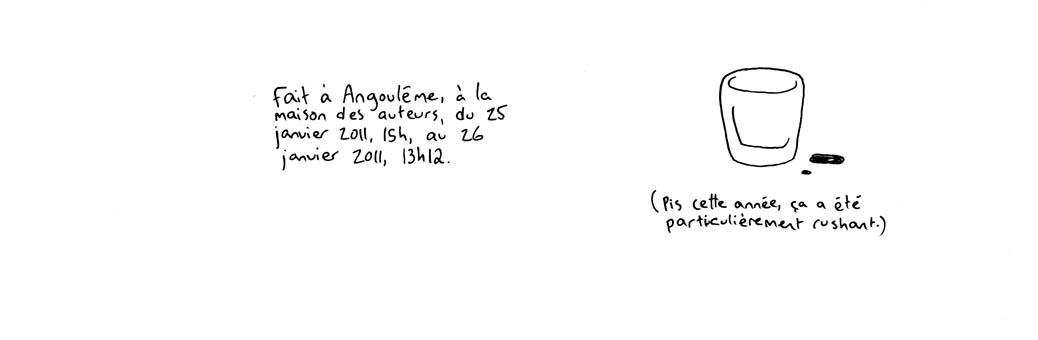 Fait à Angoulême, à la
maison des auteurs, du 25
janvier 2011, 15h, au 26
janvier 2011, 13h12.
(Pis cette année, ça a été
particulièrement rushant.)